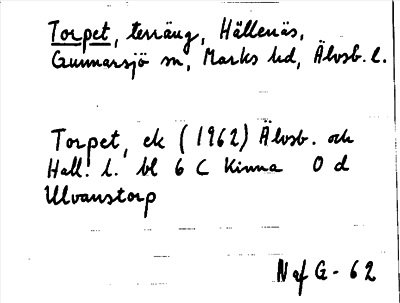 Torpet, terräng, Hällenäs,
Gunnarsjö sn, Marks hd, Älvsb. l.
Torpet, ek (1962) Älvsb. och
Hall. l. bl 6 C Kinna 0 d
Ulvanstorp
Naf G - 62